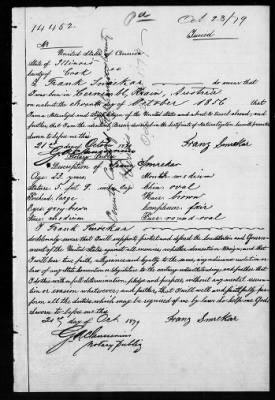 14452
Oct 23/79
Issued
No
United States of America
State of Illinois
County of Cook
I Frank Smrekar do swear that
I was born in Krain, Austria
on or about the day of October 1856 that
I am a Naturalized Citizen of the United States and about to travel abroad; and
further, that I am the
Sworn to before me this
21st day of Octo 1879
Franz Smrekar
Notary Public
Description of Smrekar
Age: 23 years Mouth: medium
Stature: 5 ft 9 inches Chin: oval
Forehead: large Hair: brown
Eyes: grey brown Complexion: fair
Nose: medium Face: round oval
I Frank Smrekar do
solemnly swear that I will support, protect and defend the Constitution and Govern-
ment of the United States against all enemies, whether domestic or foreign; and that
I will bear true faith, allegiance and loyalty to the same, any ordinance, resolution or
law of any State Convention or Legislature to the contrary notwithstanding; and further, that
I do this with a full determination, pledge and purpose, without any mental reserva-
tion or evasion whatsoever; and further, that I will well and faithfully per-
form all the duties which may be required of me by law. So help me God.
Sworn to before me this
21st day of Oct. 1879
Franz Smrekar
Notary Public